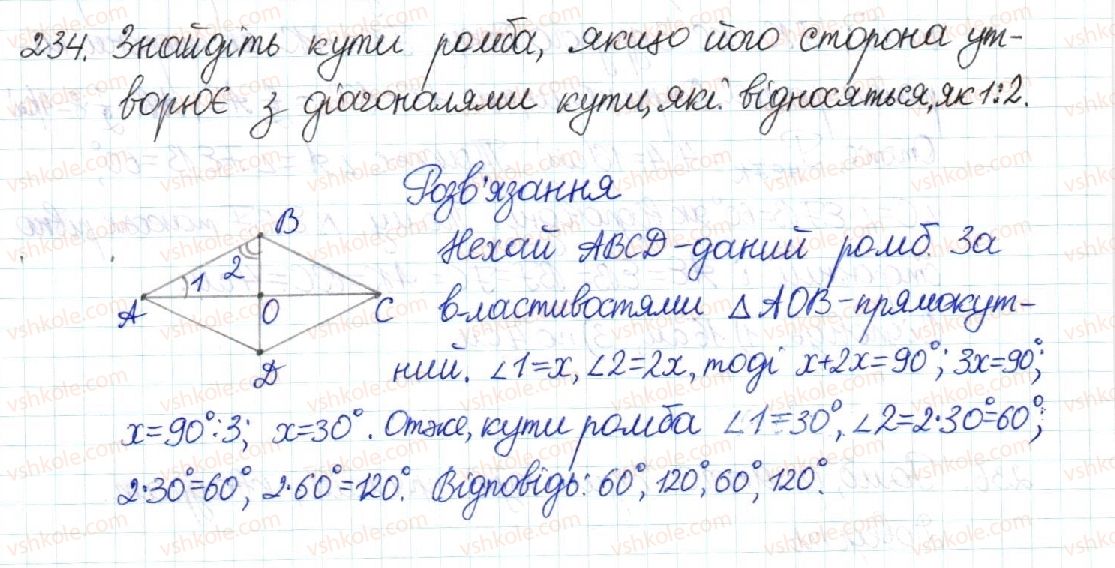 234. Знайдіть кути ромба, якщо його сторона ут-
ворює з діагоналями кути, які відносяться, як 1:2.
Розв'язання
B
2
1
A
O
C
D
Нехай ABCD - даний ромб. За
властивостями △AOB - прямокут-
ний. ∠1=x, ∠2=2x, тоді x+2x=90°; 3x=90°;
x=90°:3; x=30°. Отже, кути ромба ∠1=30°, ∠2=2·30°=60°;
2·30°=60°, 2·60°=120°. Відповідь: 60°, 120°, 60°, 120°.
vshkole.com